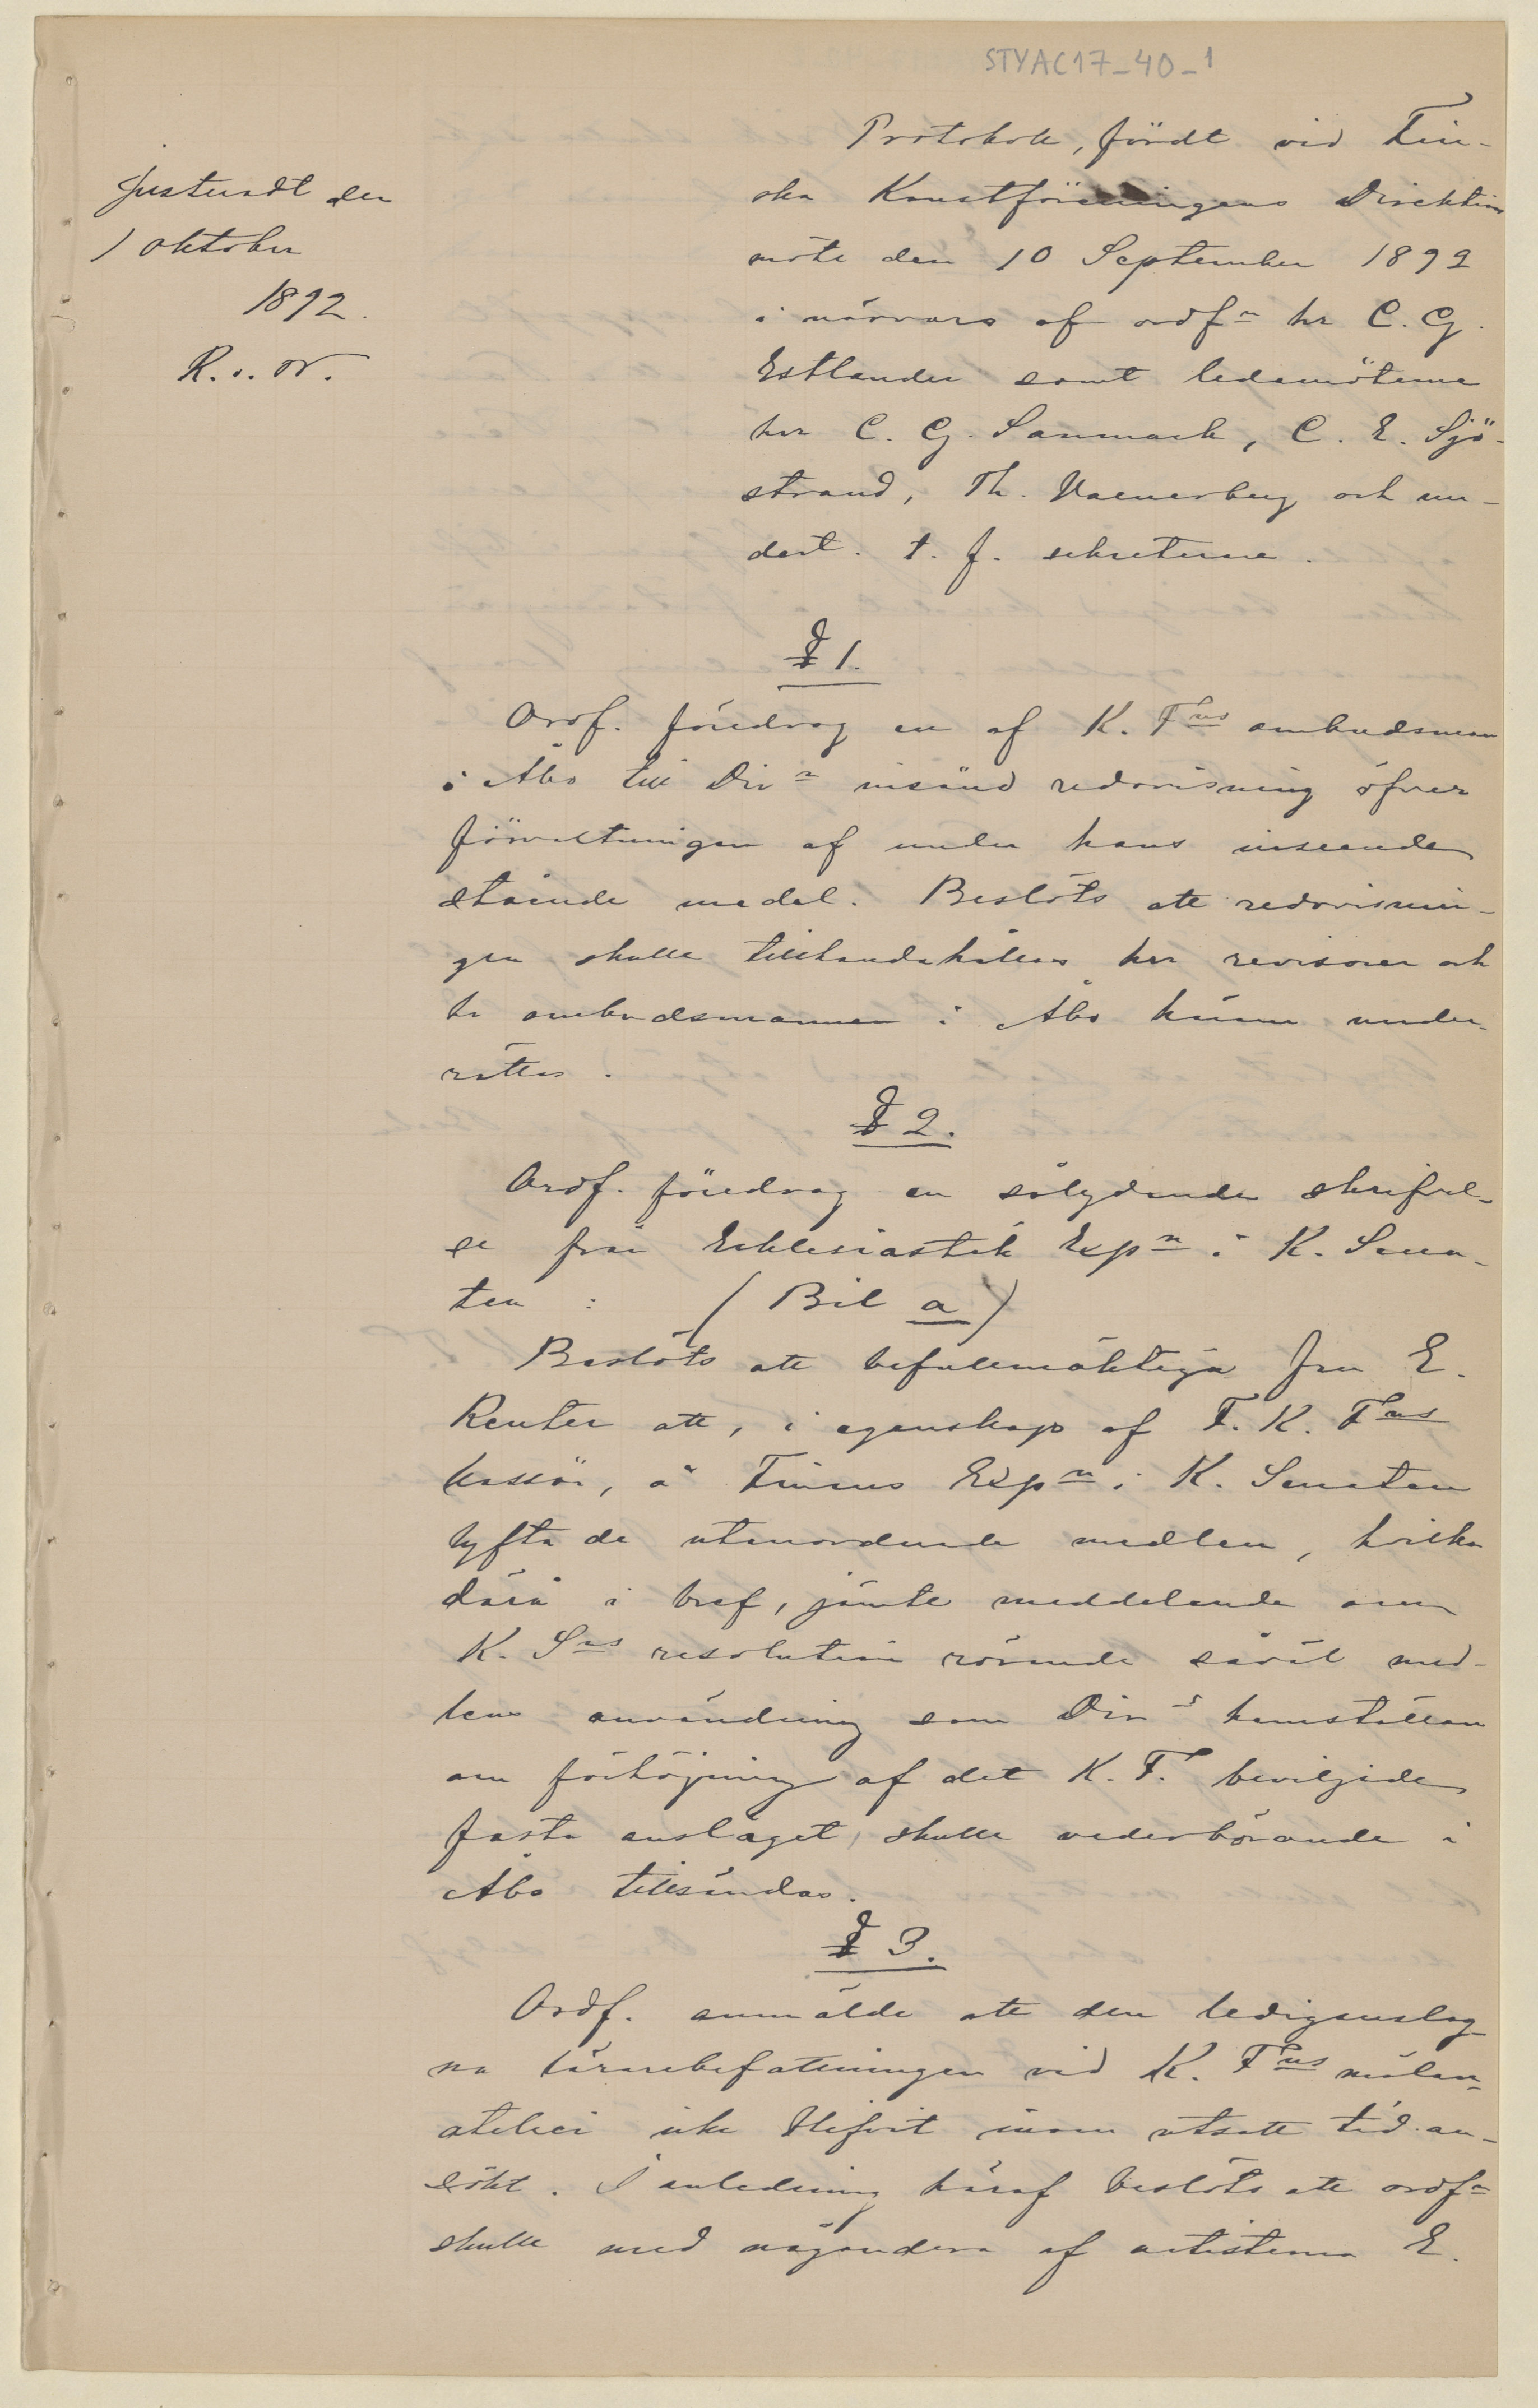 STYAC17_40_1
Protokoll, fördt vid Fin-
ska Konstföreningens Direktions
möte den 10 September 1892
i närvaro af ordfn hr C. G.
Estlander samt ledamöterna
hrr C. G. Sanmark, C. E. Sjö-
strand, Th. Waenerberg och un-
dert. t. f. sekreterare.
Justeradt den
1 oktober
1892.
R. v. W.
§ 1.
Ordf. föredrog en af K. Fns ombudsman
i Åbo till Dirn insänd redovisning öfver
förvaltningen af under hans inseende
stående medel. Beslöts att redovisnin-
gen skulle tillhandahållas hrr revisorer och
hr ombudsmannen i Åbo härom under-
rättas.
§ 2.
Ordf. föredrog en sålydande skrifvel-
se från Ecklesiastik Expn i K. Sena-
ten : (Bil a)
Beslöts att befullmäktiga fru E.
Reuter att, i egenskap af F. K. Fns
kassör, å Finans Expn i K. Senaten
lyfta de utanordnade medlen, hvilka
därå i bref, jämte meddelande om
K. Sns resolution rörande såväl med-
lens användning som Dirs hemställan
om förhöjning af det K. F. beviljade
fasta anslaget, skulle vederbörande i
Åbo tillsändas.
§ 3.
Ordf. anmälde att den lediganslag-
na lärarebefattningen vid K. Fns målar-
atelier icke blifvit inom utsatt tid an-
sökt. I anledning häraf beslöts att ordfn
skulle med någondera af artisterna E.